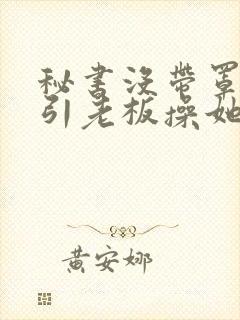 秘书没带罩
引老板操她
黄安娜